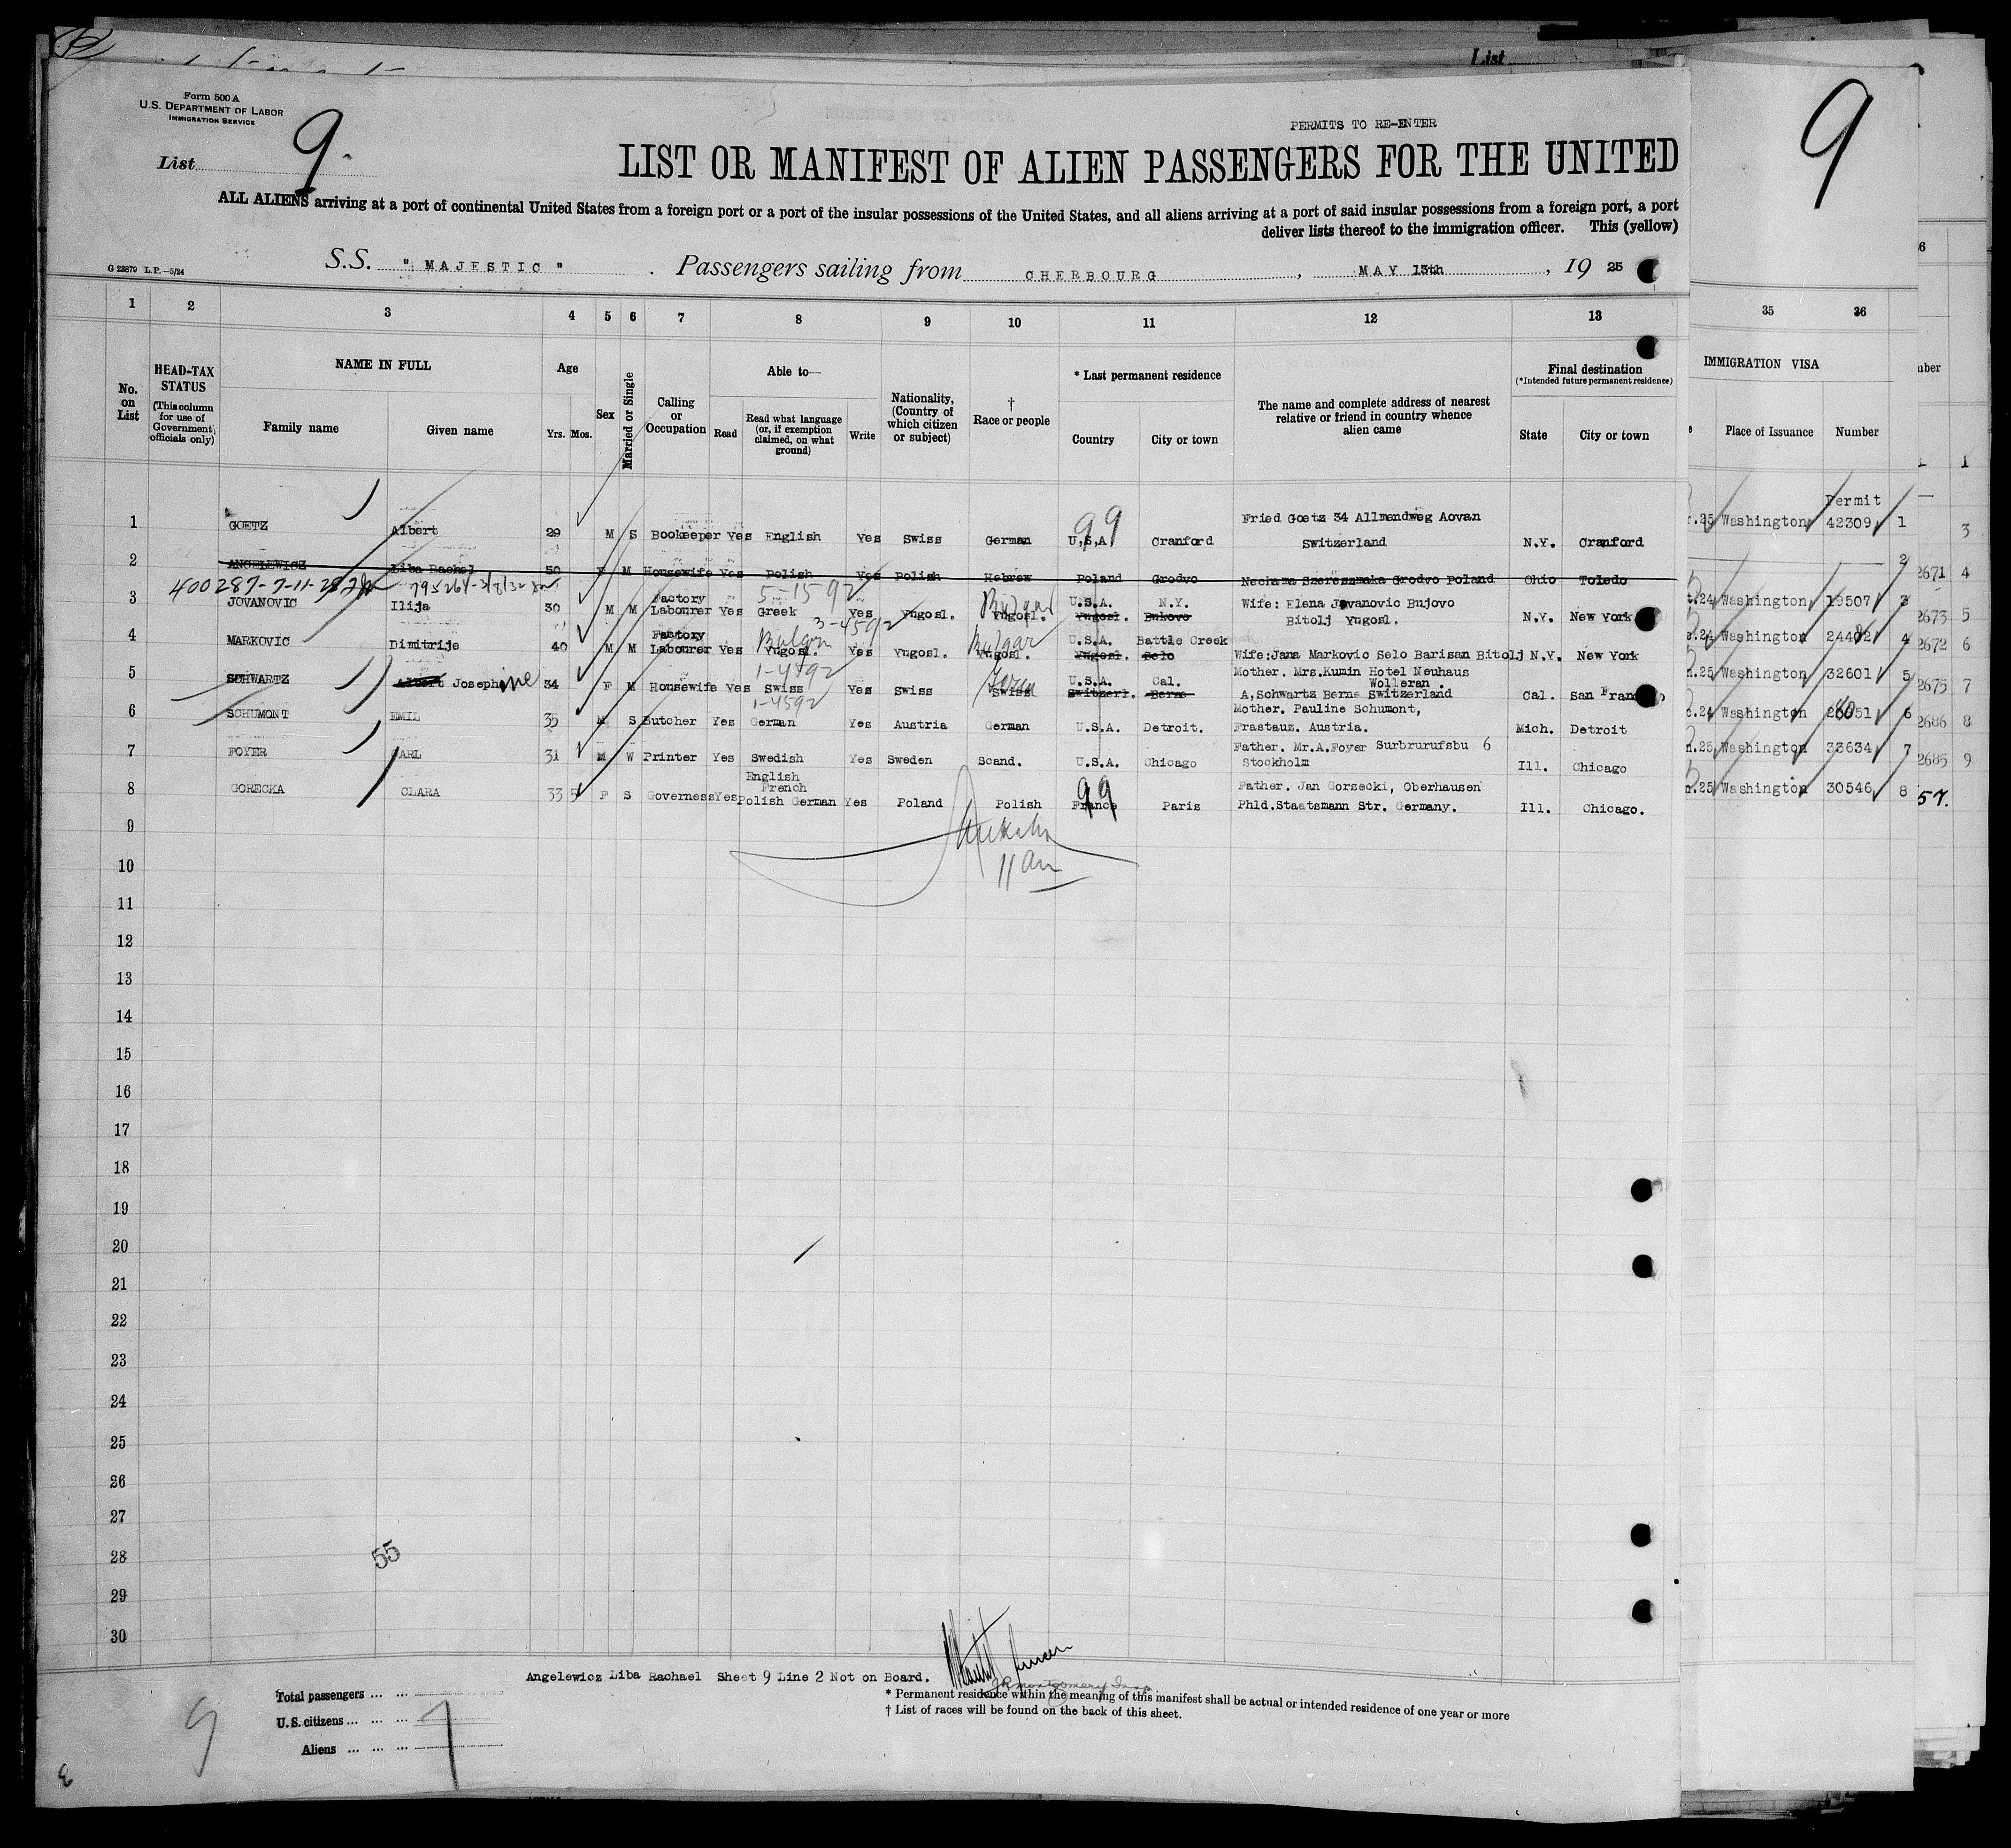 List
Form 500 A
U.S. DEPARTMENT OF LABOR
IMMIGRATION SERVICE
List 9.
PERMITS TO RE-ENTER
LIST OR MANIFEST OF ALIEN PASSENGERS FOR THE UNITED
9
ALL ALIENS arriving at a port of continental United States from a foreign port or a port of the insular possessions of the United States, and all aliens arriving at a port of said insular possessions from a foreign port, a port
deliver lists thereof to the immigration officer. This (yellow)
G 23879 L.P.-5/24
S.S. "MAJESTIC". Passengers sailing from CHERBOURG, MAY 13th, 19 25
1 2 3 4 5 6 7 8 9 10 11 12 13 35 36
No. on List
HEAD-TAX STATUS
(This column for use of Government officials only)
NAME IN FULL
Family name Given name
Age
Yrs. Mos.
Sex
Married or Single
Calling or Occupation
Able to—
Read
Read what language (or, if exemption claimed, on what ground)
Write
Nationality, (Country of which citizen or subject)
† Race or people
* Last permanent residence
Country City or town
The name and complete address of nearest relative or friend in country whence alien came
Final destination
(*Intended future permanent residence)
State City or town
IMMIGRATION VISA
Place of Issuance Number
Permit
1 GOETZ Albert 29 M S Bookeeper Yes English Yes Swiss German U.S.A. 99 Cranford Fried Goetz 34 Allmendweg Aovan Switzerland N.Y. Cranford .25 Washington 42309 1
2 ANGELEWICZ Liba Rachel 50 F M Housewife Yes Polish Yes Polish Hebrew Poland Grodvo Nechama Szereszmaka Grodvo Poland Ohio Toledo 2
3 JOVANOVIC Ilija 30 M M Factory Labourer Yes Greek 5-15-92 Yes Yugosl. Yugosl. Bulgar U.S.A. N.Y. Yugosl. Bukovo Wife: Elena Jovanovic Bujovo Bitolj Yugosl. N.Y. New York .24 Washington 19507 3
4 MARKOVIC Dimitrije 40 M M Factory Labourer Yes Yugosl. 3-4592 Yes Yugosl. Yugosl. Bulgar U.S.A. Battle Creek Yugosl. Selo Wife:Jana Markovic Selo Barisan Bitolj N.Y. New York .24 Washington 4
5 SCHWARTZ Albert Josephine 34 F M Housewife Yes Swiss 1-4592 Yes Swiss Swiss U.S.A. Cal. Switzerl. Berne Mother. Mrs.Kumin Hotel Neuhaus Wolleran. A,Schwartz Berne Switzerland Cal. San Fran .25 Washington 32601 5
6 SCHUMONT EMIL 35 M S Butcher Yes German 1-4592 Yes Austria German U.S.A. Detroit. Mother. Pauline Schumont, Frastauz. Austria. Mich. Detroit .24 Washington 6
7 FOYER CARL 31 M W Printer Yes Swedish Yes Sweden Scand. U.S.A. Chicago Father. Mr.A.Foyer Surbrurufsbu 6 Stockholm Ill. Chicago .25 Washington 33634 7
8 GORECKA CLARA 33 5 F S Governess Yes English French Polish German Yes Poland Polish France 99 Paris Father. Jan Gorzecki, Oberhausen Phld.Staatsmann Str. Germany. Ill. Chicago. .25 Washington 30546 8
2671 4
2673 5
2672 6
2675 7
2686 8
2685 9
57.
9
10
11
12
13
14
15
16
17
18
19
20
21
22
23
24
25
26
27
28
29
30
55
Angelewicz Liba Rachael Sheet 9 Line 2 Not on Board.
Total passengers ... ...
U.S. citizens ... ... ...
Aliens ... ... ...
9
7
* Permanent residence within the meaning of this manifest shall be actual or intended residence of one year or more
† List of races will be found on the back of this sheet.